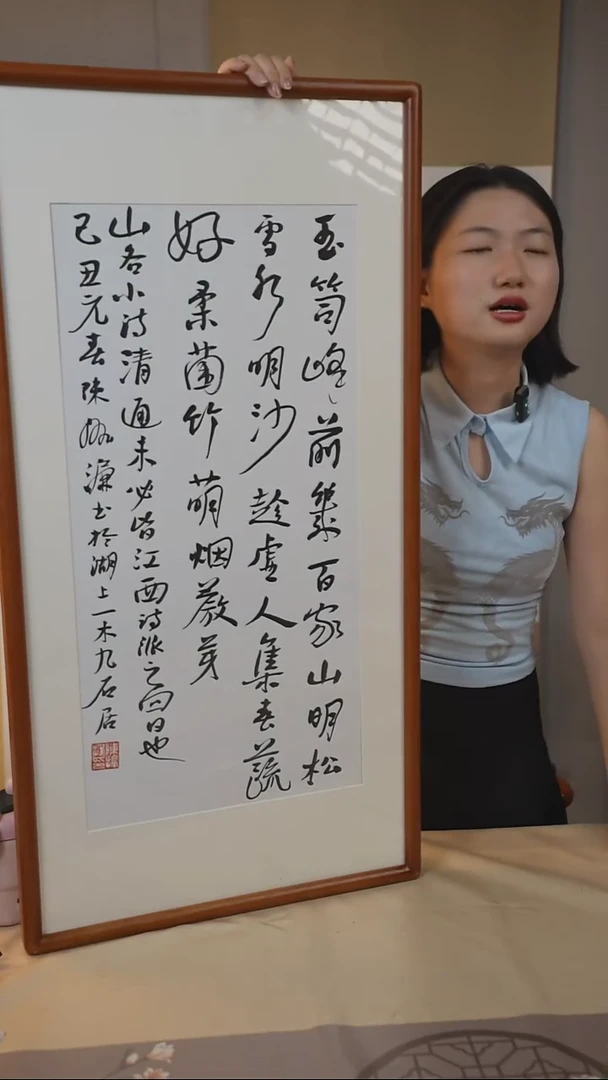 玉笥峰前幾百家山明松
雪水明沙趁虚人集春蔬
好桑菌竹萌烟蕨芽
山谷小詩清通未必皆江西詩派之面目也
己丑元春陳振濂書於湖上一木九石居